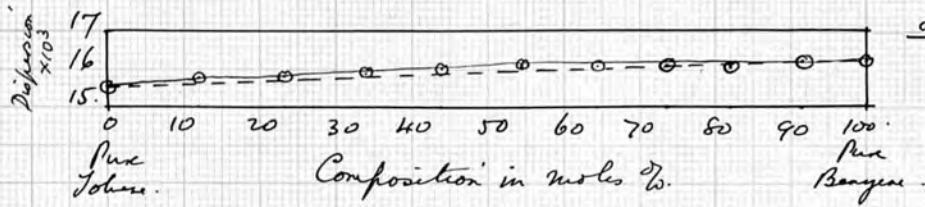 Dispersion
×10³
17
16
15.
0 10 20 30 40 50 60 70 80 90 100.
Pure
Toluene.
Composition in moles %.
Pure
Benzene.